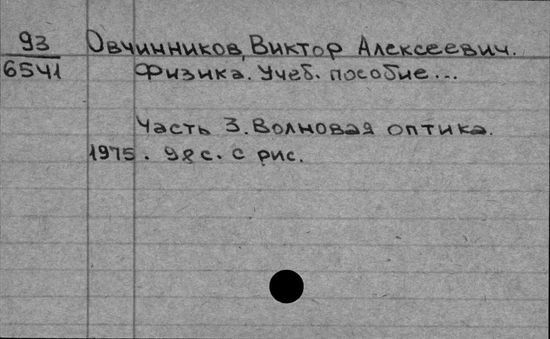 93 Овчинников, Виктор Алексеевич.
6541 Физика. Учеб. пособие...
Часть 3. Волновая оптика.
1975. 98 с. с рис.